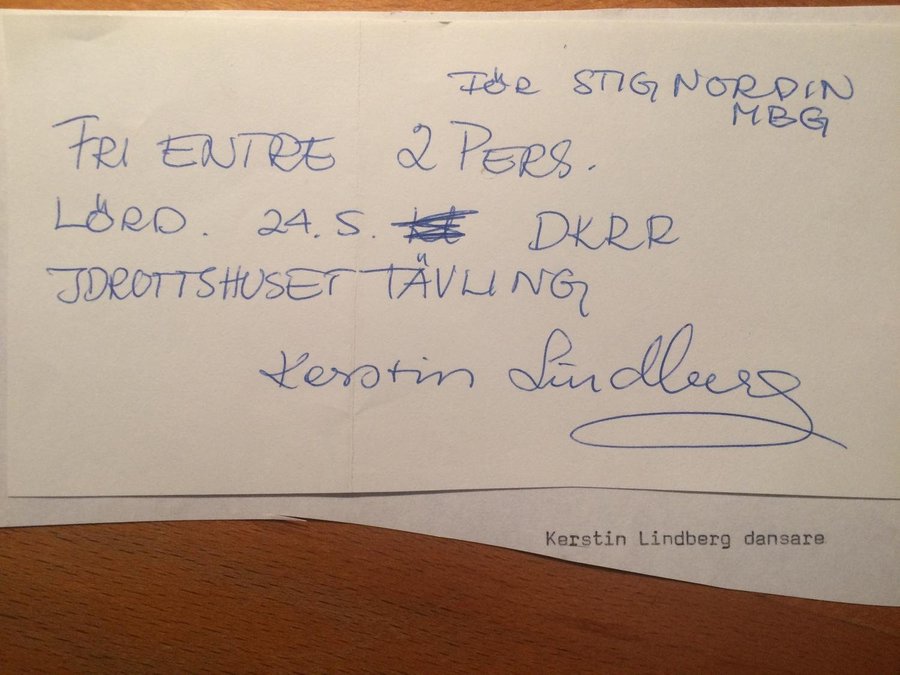 FÖR STIG NORDIN
MBG
FRI ENTRE 2 PERS.
LÖRD. 24.5. DKRR
IDROTTSHUSET TÄVLING
Kerstin Lindberg
Kerstin Lindberg dansare